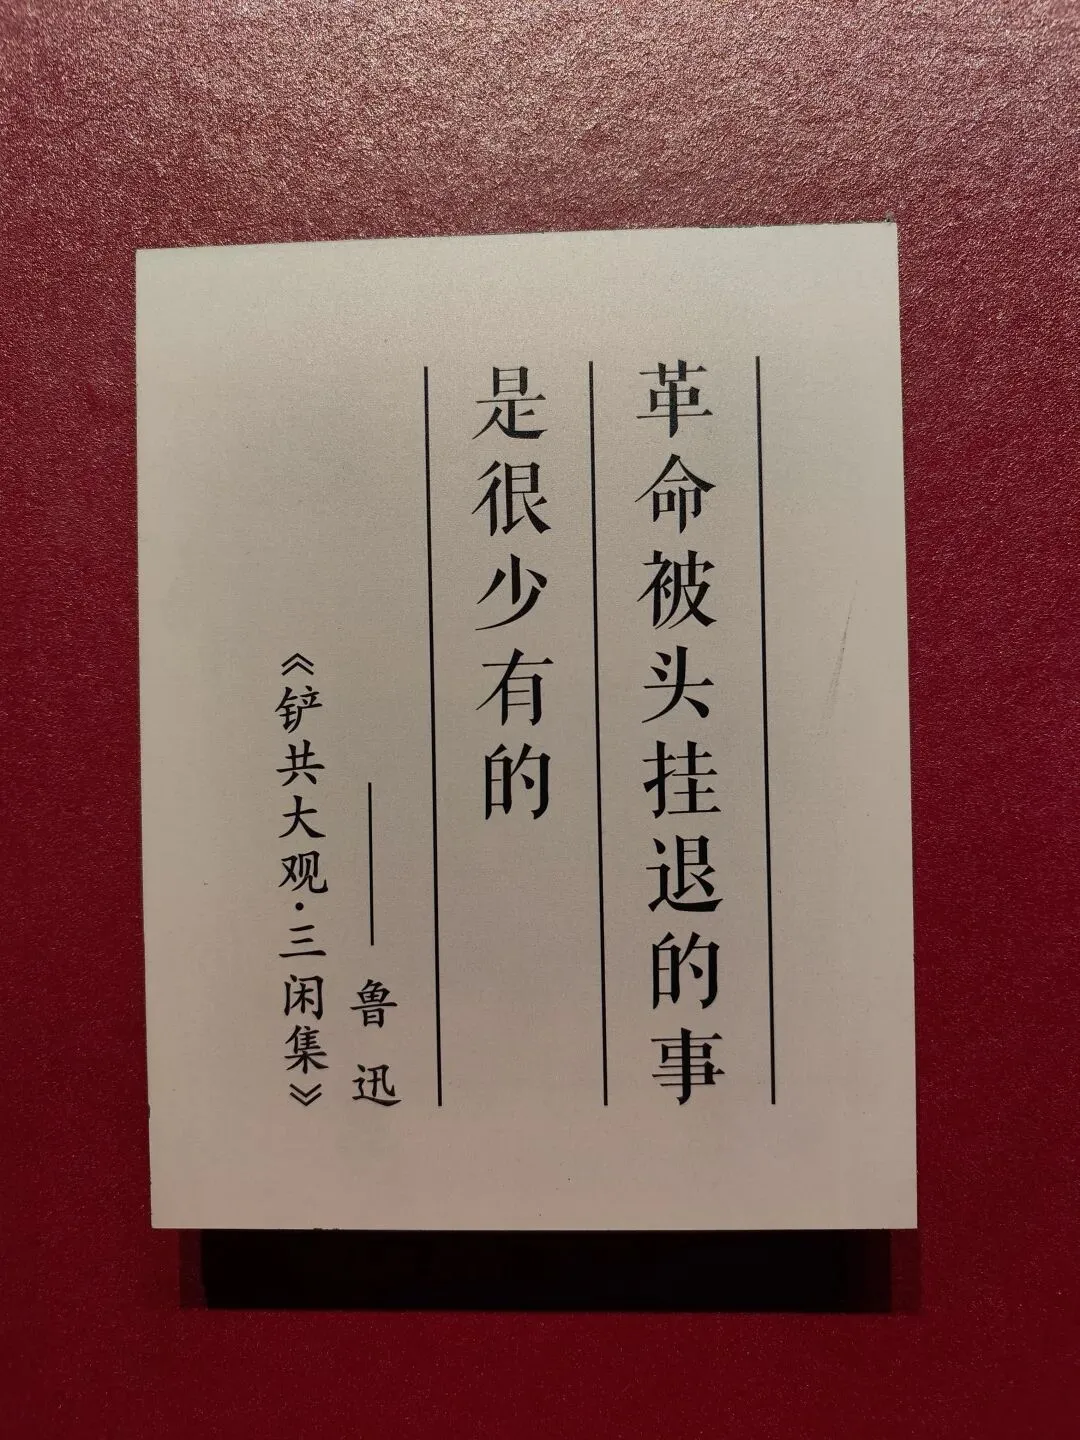 革命被头挂退的事
是很少有的
——鲁迅
《铲共大观·三闲集》